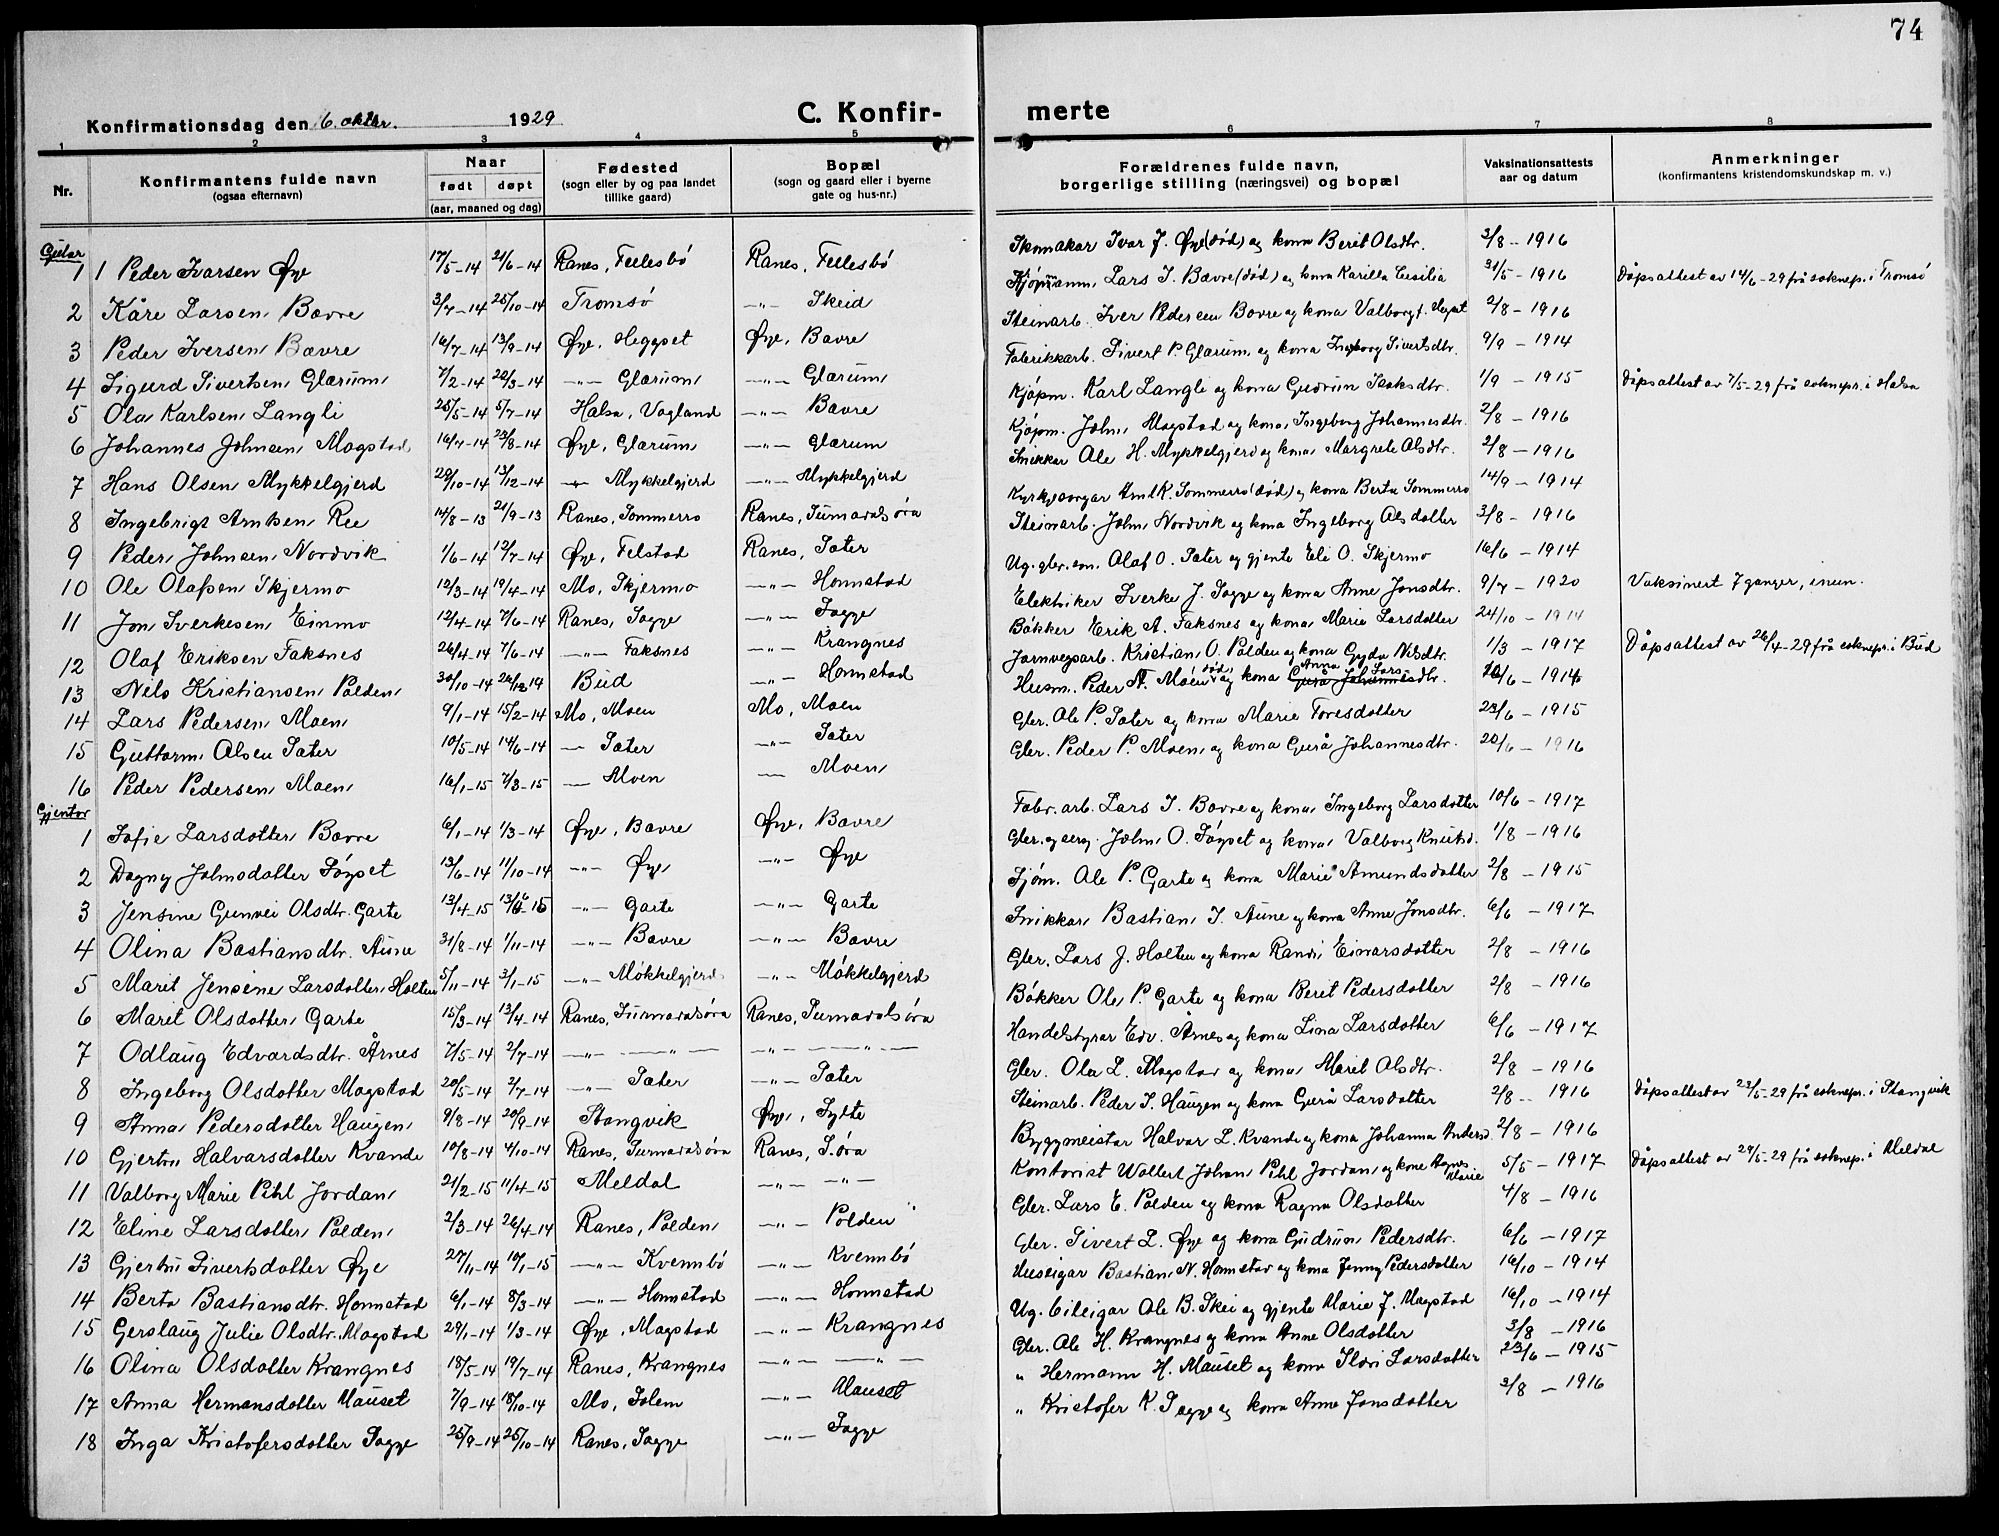 74
Konfirmationsdag den 6. oktbr. 1929 C. Konfirmerte
1 2 3 4 5 6 7 8
Nr. Konfirmantens fulde navn (ogsaa efternavn) Naar født døpt (aar, maaned og dag) Fødested (sogn eller by og paa landet tillike gaard) Bopæl (sogn og gaard eller i byerne gate og hus-nr.) Forældrenes fulde navn, borgerlige stilling (næringsvei) og bopæl Vaksinationsattests aar og datum Anmerkninger (konfirmantens kristendomskundskap m. v.)
Gutar
1 1 Peder Ivarsen Øye 17/5-14 21/6-14 Ranes, Fellesbø Ranes, Fellesbø Skomakar Ivar J. Øye (død) og kona Berit Olsdtr. 3/8 - 1916
2 Kåre Larsen Bævre 3/7-14 25/10-14 Tromsø -"- Skeid Kjøpmann Lars I. Bævre (død) og kona Karilla Cecilia 31/5 - 1916 Dåpsattest av 14/6-29 frå soknepr. i Tromsø
3 Peder Iversen Bævre 16/7-14 13/9-14 Øye, Heggset Øye, Bævre Steinarb. Iver Pedersen Bævre og kona Valborg f. Hegset 2/8 - 1916
4 Sigurd Sivertsen Glærum 7/2-14 22/3-14 -"- Glærum -"- Glærum Fabrikkarb. Sivert P. Glærum og kona Ingeborg Sivertsdtr. 9/9 - 1914
5 Ola Karlsen Langli 25/5-14 5/7-14 Halsa, Vågland -"- Bævre Kjøpm. Karl Langli og kona Gudrun Isaksdtr. 1/9 - 1915 Dåpsattest av 7/5-29 frå soknepr. i Halsa
6 Johannes Johnsen Magstad 16/7-14 23/8-14 Øye, Glærum -"- Glærum Kjøpm. John Magstad og kona Ingeborg Johannesdtr. 2/8 - 1916
7 Hans Olsen Mykkelgjerd 29/10-14 13/12-14 -"- Mykkelgjerd -"- Mykkelgjerd Snikkar Ole H. Mykkelgjerd og kona Margrete Olsdtr. 2/8 - 1916
8 Ingebrigt Arntsen Ree 14/8-13 21/9-13 Ranes, Sommerro Ranes, Surnadalsøra Kyrkjesongar Arnt K. Sommerro (død) og kona Berta Sommerro 14/9 - 1914
9 Peder Johnsen Nordvik 1/6-14 12/7-14 Øye, Telstad Ranes, Sæter Steinarb. John Nordvik og kona Ingeborg Olsdotter 3/8 - 1916
10 Ole Olafsen Skjermo 12/3-14 19/4-14 Mo, Skjermo -"- Honnstad Ug. glr. son. Olaf O. Sæter og gjente Eli O. Skjermo 16/6 - 1914
11 Jon Sverkesen Einmo 12/4-14 7/6-14 Ranes, Sogge -"- Sogge Elektriker Sverke J. Sogge og kona Anne Jonsdtr. 9/7 - 1920 Vaksinert 7 ganger, inum.
12 Olaf Eriksen Faksnes 26/4-14 7/6-14 -"- Faksnes -"- Krangnes Bøkker Erik A. Faksnes og kona Marie Larsdotter 24/10 - 1914
13 Nils Kristiansen Polden 30/10-14 26/12 14 Bud -"- Honnstad Jarnvegsarb. Kristian O. Polden og kona Gyda Nilsdtr. 1/3 - 1917 Dåpsattest av 26/4-29 frå soknepr. i Bud
14 Lars Pedersen Moen 9/1-14 15/2-14 Mo, Moen Mo, Moen Husm. Peder N. Moen død og kona Anna Larsdtr. 20/6 - 1916
15 Guttorm Olsen Sæter 10/5-14 14/6-14 - Sæter -"- Sæter Glr. Ole P. Sæter og kona Marie Toresdotter 23/6 - 1915
16 Peder Pedersen Moen 16/1-15 7/3-15 - Moen - Moen Glr. Peder P. Moen og kona Gurå Johannesdtr. 20/6 - 1916
Gjentor
1 Sofie Larsdotter Bævre 6/1-14 1/3-14 Øye, Bævre Øye, Bævre Fabr. arb. Lars I. Bævre og kona Ingeborg Larsdotter 10/6 - 1917
2 Dagny Johnsdotter Søyset 13/6-14 11/10-14 -"- Øye -"- Øye Glr. og serg. John O. Søyset og kona Valborg Knutsd. 1/8 - 1916
3 Jensine Gunvei Olsdtr. Garte 13/4-15 13/6-15 -"- Garte -"- Garte Sjøm. Ole P. Garte og kona Marie Amundsdotter 2/8 - 1915
4 Olina Bastiansdtr. Aune 31/8-14 1/11-14 -"- Bævre -"- Bævre Snikkar Bastian I. Aune og kona Anne Jonsdtr. 6/6 - 1917
5 Marit Jensine Larsdotter Holten 5/11-14 3/1-15 -"- Møkkelgjerd -"- Møkkelgjerd Glr. Lars J. Holten og kona Randi Einarsdotter 2/8 - 1916
6 Marit Olsdotter Garte 15/3-14 13/4-14 Ranes, Surnadalsøra Ranes, Surnadalsøra Bøkker Ole P. Garte og kona Berit Pedersdotter 2/8 - 1916
7 Odlaug Edvardsdtr. Årnes 7/5-14 2/7-14 -"- -"- -"- -"- Handelstyrar Edv. Årnes og kona Lina Larsdotter 6/6 - 1917
8 Ingeborg Olsdotter Magstad 20/5-14 2/7-14 -"- Sæter -"- Sæter Glr. Ola L. Magstad og kona Marit Olsdtr. 2/8 - 1916
9 Anna Pedersdotter Haugen 9/8-14 20/9-14 Stangvik Øye, Sylte Steinarb. Peder I. Haugen og kona Gurå Larsdotter 2/8 - 1916 Dåpsattest av 23/5-29 frå soknepr. i Stangvik
10 Gjertru Halvarsdotter Kvande 10/8-14 4/10-14 Ranes, Surnadalsøra Ranes, S.øra Byggmeistar Halvar L. Kvande og kona Johanna Andersd. 2/8 - 1916
11 Valborg Marie Pihl Jordan 21/2-15 11/4-15 Meldal -"- -"- Kontorist Wollert Johan Pihl Jordan og kone Agnes Marie 5/5 - 1917 Dåpsattest av 24/5-29 frå soknepr. i Meldal
12 Eline Larsdotter Polden 2/3-14 26/4-14 Ranes, Polden -"- Polden Glr. Lars E. Polden og kona Ragna Olsdotter 4/8 - 1916
13 Gjertru Sivertsdotter Øye 27/11-14 10/1-15 -"- Kvennbø -"- Kvennbø Glr. Sivert L. Øye og kona Gudrun Pedersdtr. 6/6 - 1917
14 Berta Bastiansdtr. Honnstad 6/1-14 8/3-14 -"- Honnstad -"- Honnstad Huseigar Bastian N. Honnstad og kona Jenny Pedersdotter 16/10 - 1914
15 Gerslaug Julie Olsdtr. Magstad 29/1-14 1/3-14 Øye, Magstad -"- Krangnes Ug. bileigar Ole B. Skei og gjente Marie J. Magstad 16/10 - 1914
16 Olina Olsdotter Krangnes 18/5-14 19/7-14 Ranes, Krangnes -"- -"- Glr. Ole H. Krangnes og kona Anne Olsdotter 3/8 - 1916
17 Anna Hermansdotter Mauset 7/9-14 18/10-14 Mo, Solem -"- Mauset " Hermann H. Mauset og kona Ildri Larsdotter 23/6 - 1915
18 Inga Kristofersdotter Sogge 25/9-14 25/10-14 Ranes, Sogge -"- Sogge " Kristofer K. Sogge og kona Anne Jonsdotter 3/8 - 1916